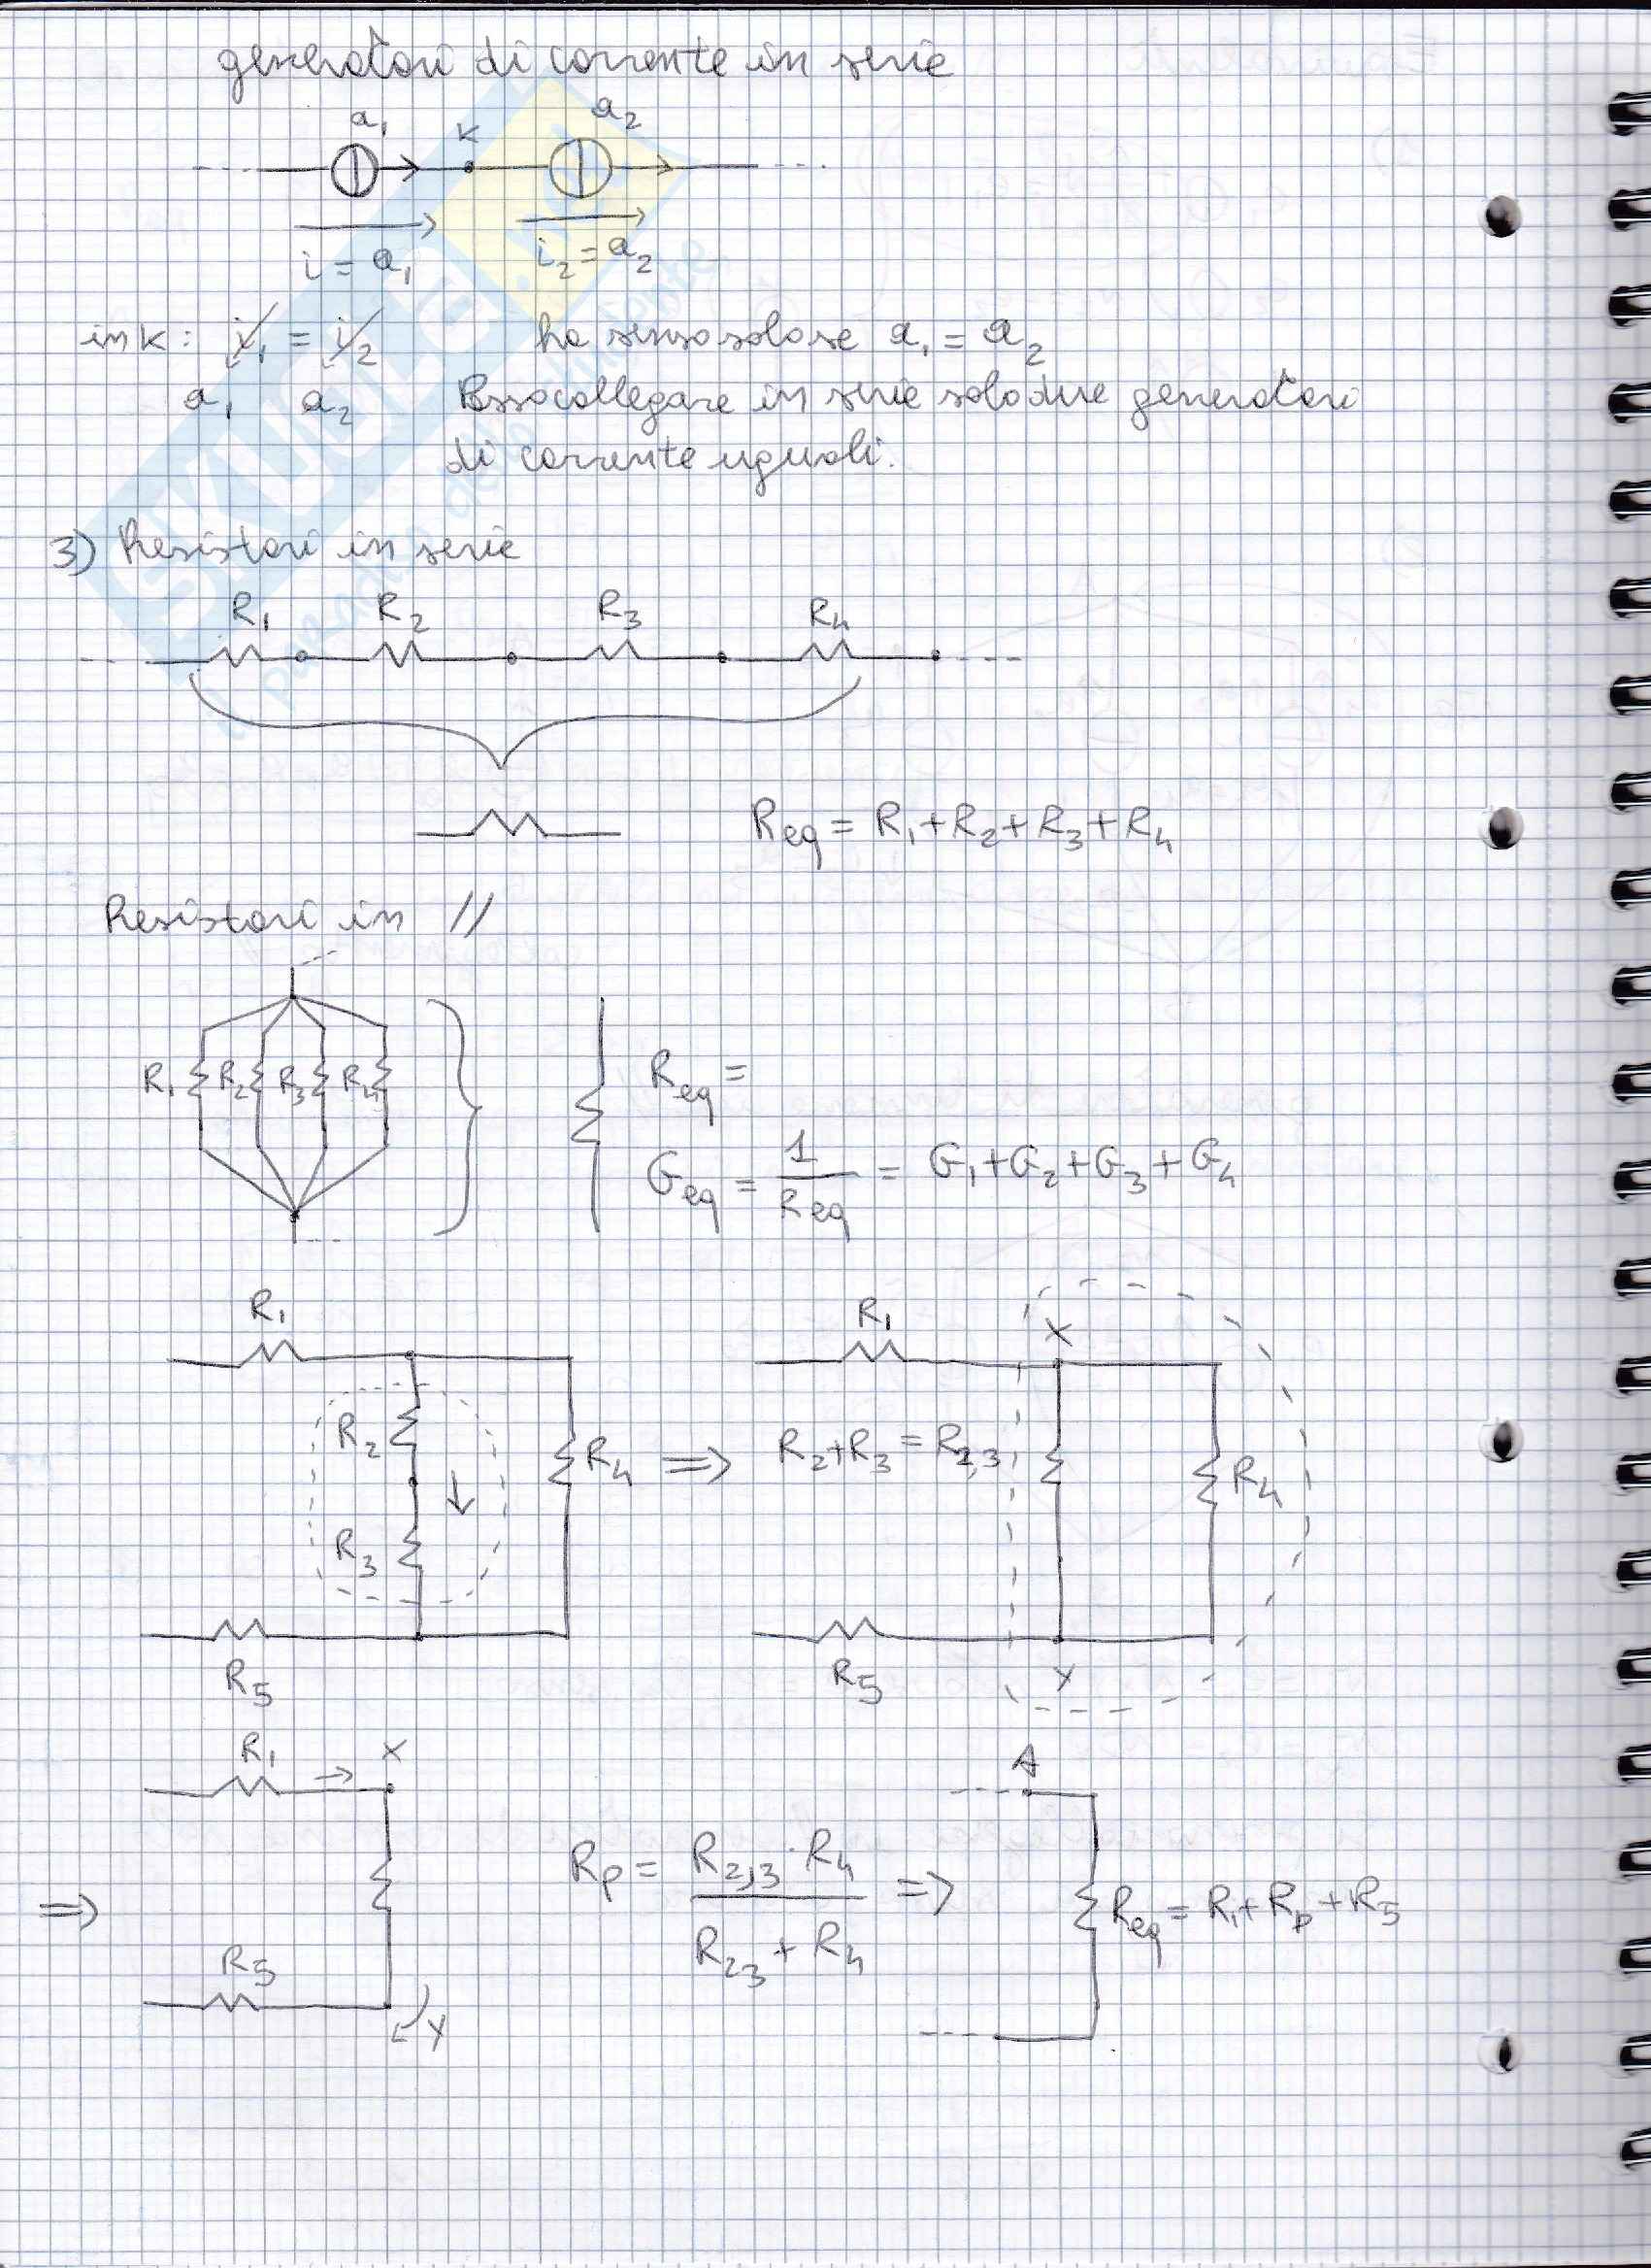 generatori di corrente in serie
a₁ K a₂
i = a₁ i₂ = a₂
in K: i₁ = i₂ ha senso solo se a₁ = a₂
a₁ a₂ Posso collegare in serie solo due generatori
di corrente uguali.
3) Resistori in serie
R₁ R₂ R₃ R₄
Req = R₁+R₂+R₃+R₄
Resistori in //
R₁ R₂ R₃ R₄
Req =
Geq = 1/Req = G₁+G₂+G₃+G₄
R₁ R₁ X
R₂ R₄ ⇒ R₂+R₃ = R₂,₃ R₄
R₃
R₅ R₅ Y
R₁ X A
⇒ Rp = R₂,₃ · R₄ / R₂₃ + R₄ ⇒ Req = R₁+Rp+R₅
R₅ Y
SKUOLA.net